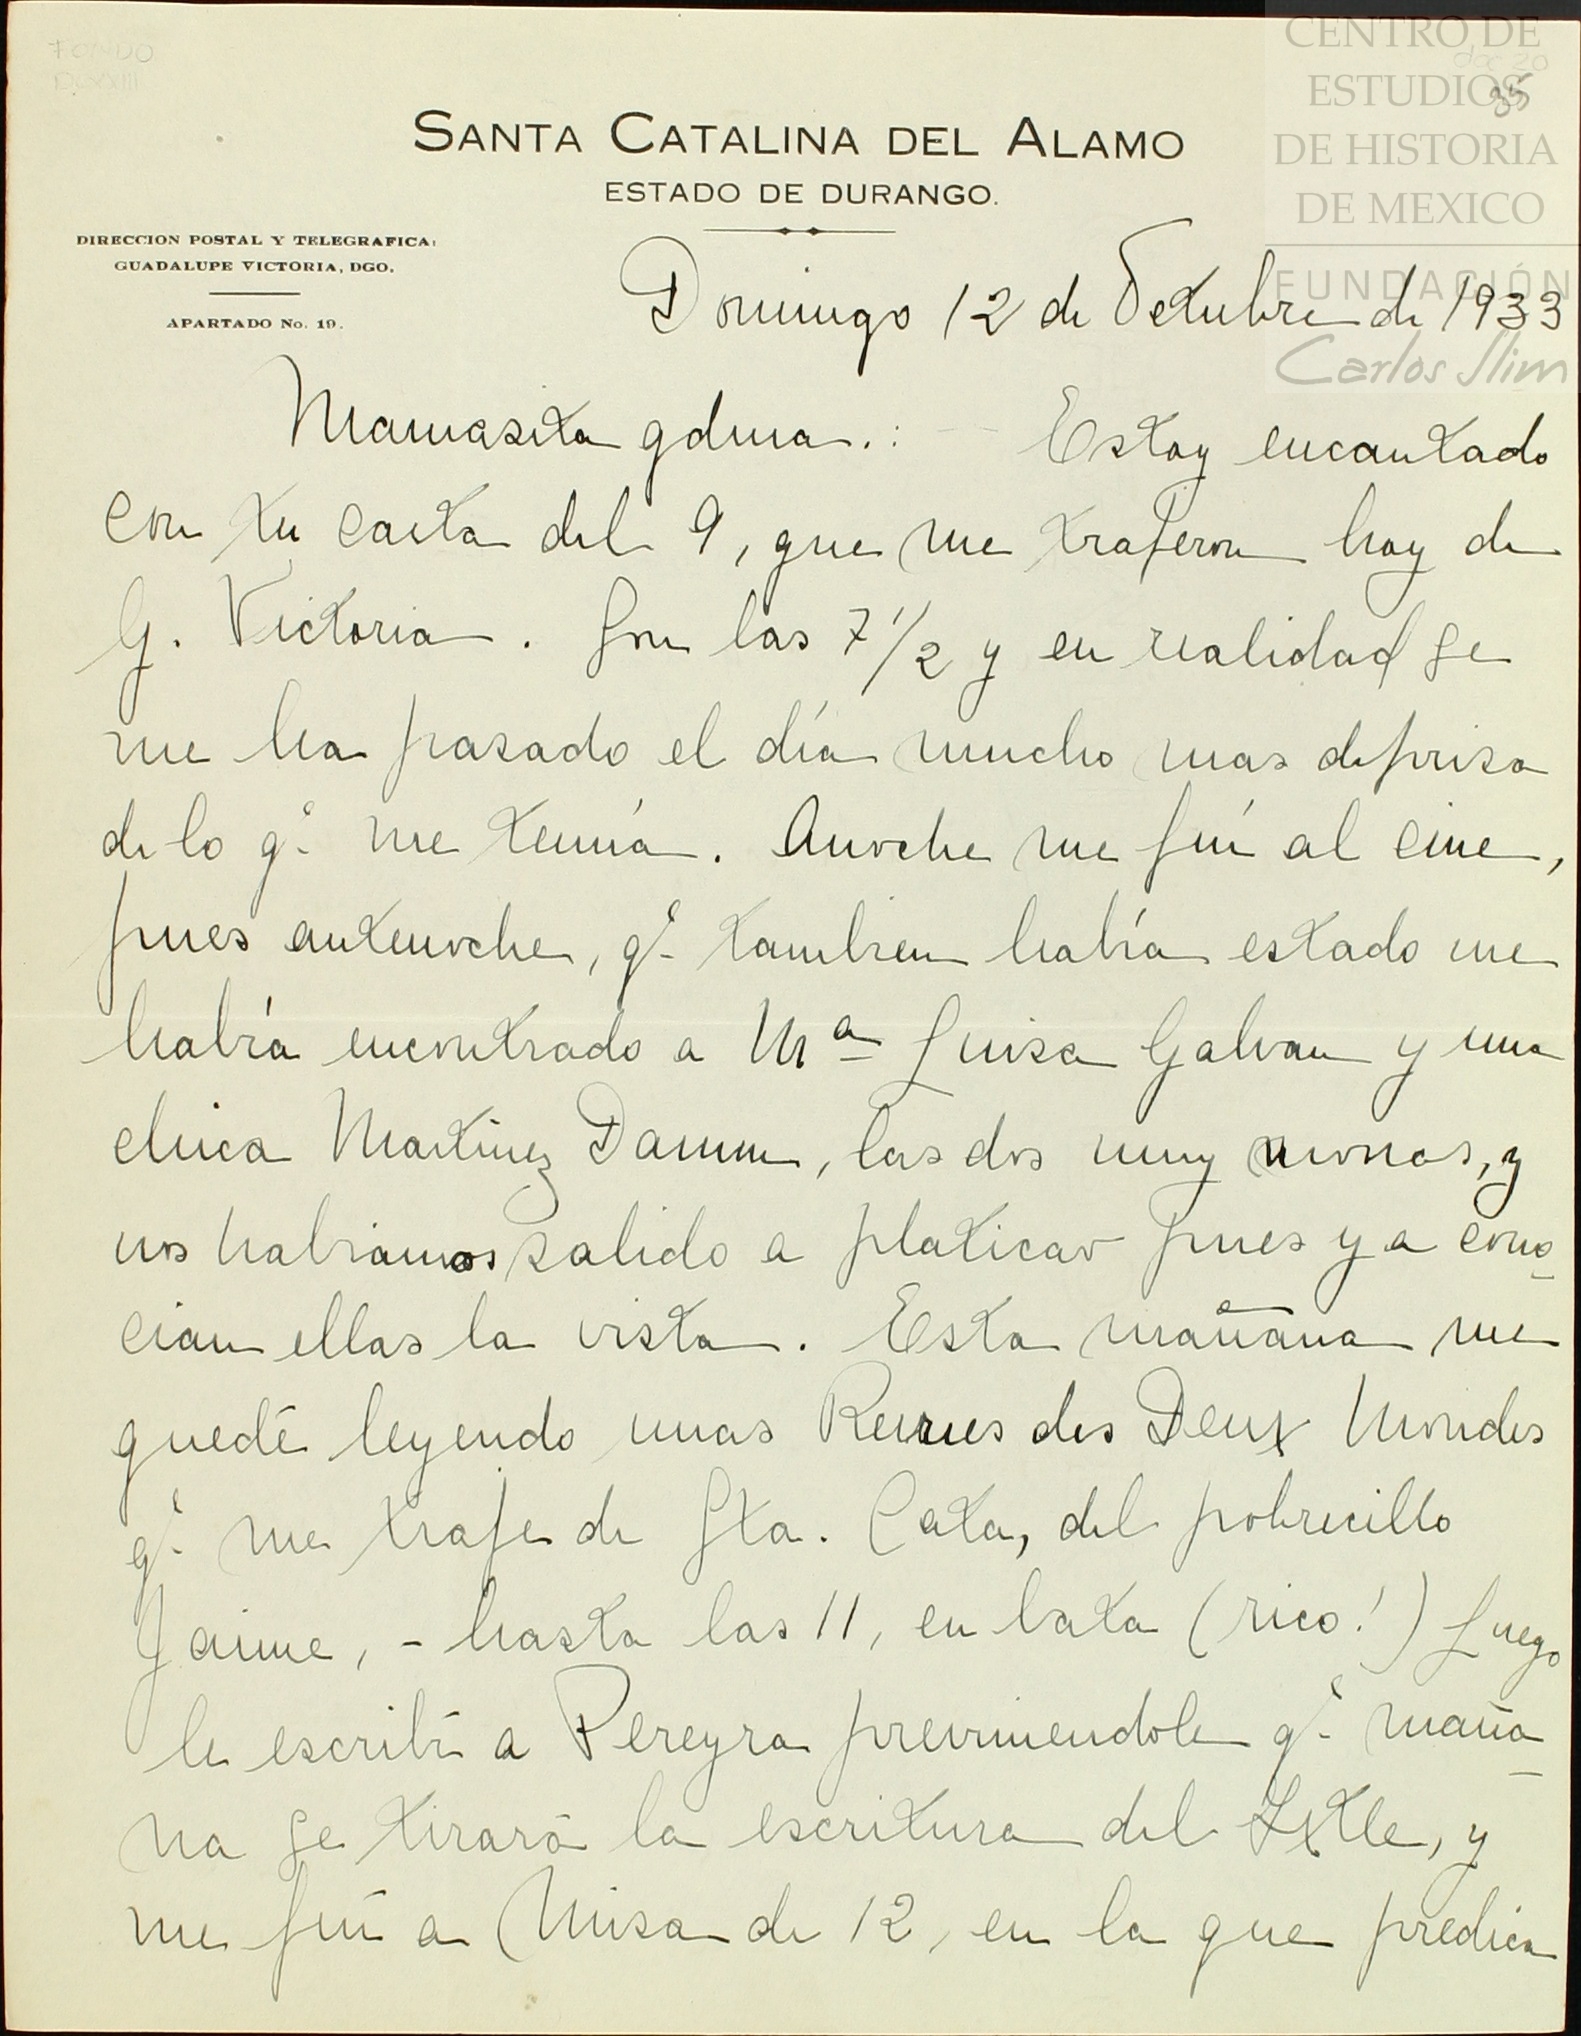 FONDO
DCXXIII
CENTRO DE
ESTUDIOS
DE HISTORIA
DE MEXICO
FUNDACIÓN
Carlos Slim
doc 20
35
SANTA CATALINA DEL ALAMO
ESTADO DE DURANGO.
DIRECCION POSTAL Y TELEGRAFICA:
GUADALUPE VICTORIA, DGO.
APARTADO No. 19.
Domingo 12 de Octubre de 1933
Mamasita gdma.: Estoy encantado
con tu carta del 9, que me trajeron hoy de
G. Victoria. Son las 7 1/2 y en realidad se
me ha pasado el día mucho mas deprisa
de lo q.e me temía. Anoche me fuí al cine,
pues antenoche, q.e tambien había estado me
había encontrado a Ma Luisa Galvan y una
chica Martinez Damm, las dos muy monas, y
nos habiamos salido a platicar pues ya cono-
cian ellas la vista. Esta mañana me
quedé leyendo unas Revues des Deux Mondes
q.e me traje de Sta. Cata, del pobrecillo
Jaime, - hasta las 11, en bata (rico!) Luego
le escribí a Pereyra previniendole q.e maña-
na se tirará la escritura del Ixtle, y
me fuí a Misa de 12, en la que predica